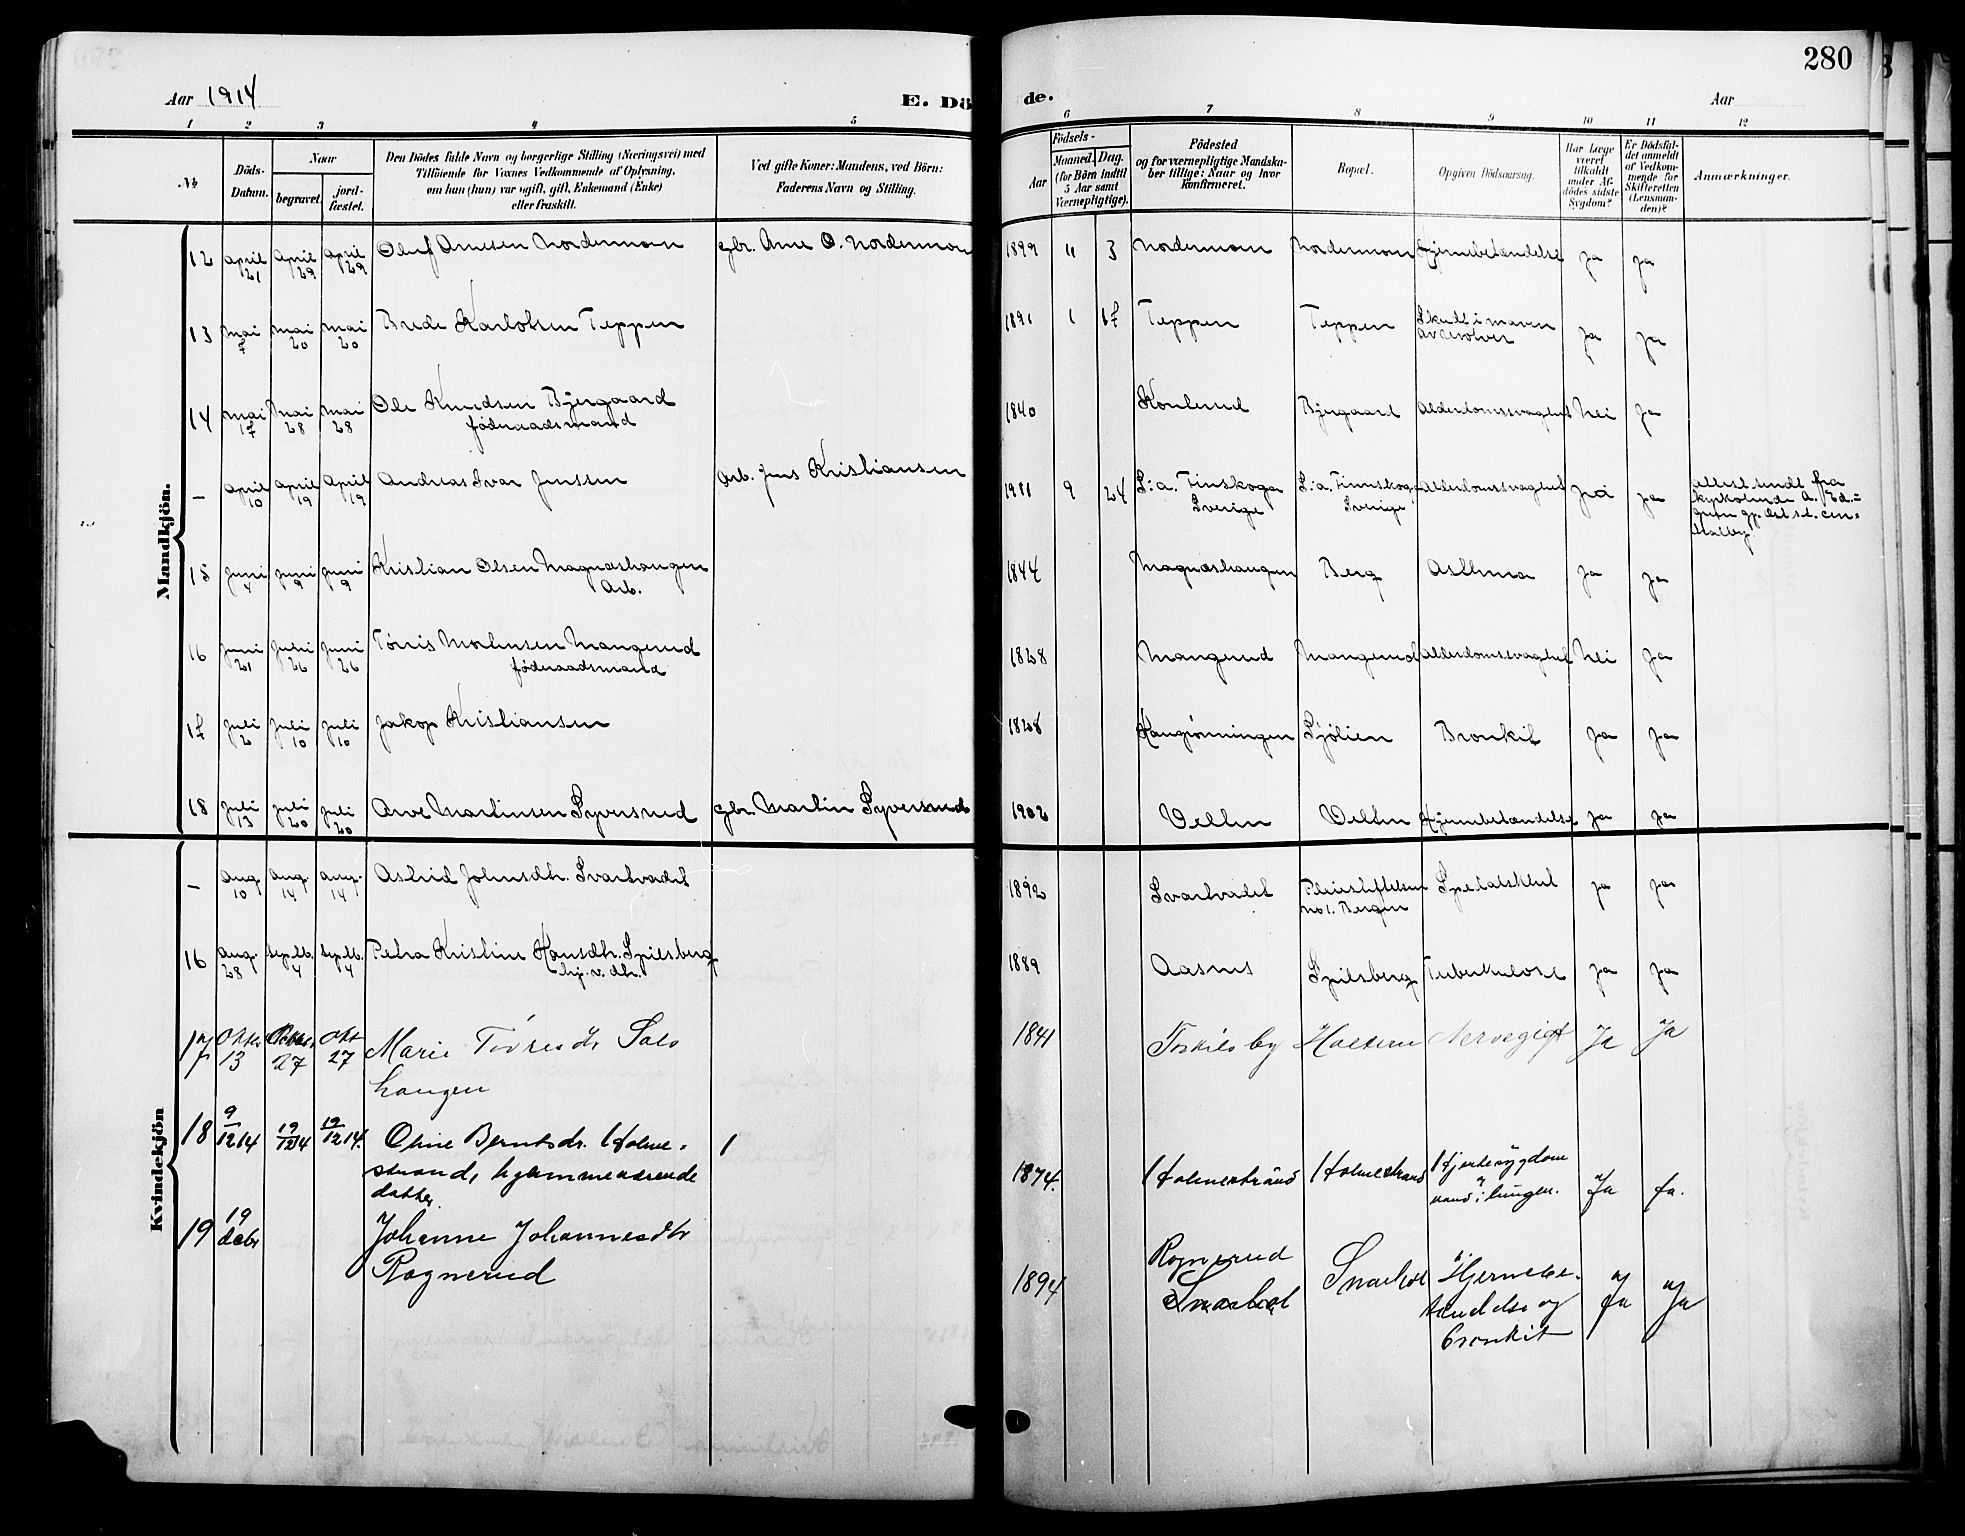 280
Aar 1914
E. Dö
de.
Aar
1 2 3 4 5 6 7 8 9 10 11 12
№
Döds-
Datum.
Naar
begravet.
jord-
fæstet.
Den Dödes fulde Navn og borgerlige Stilling (Næringsvei) med
Tilföiende for Voxnes Vedkommende af Oplysning,
om han (hun) var ugift, gift, Enkemand (Enke)
eller fraskilt.
Ved gifte Koner: Mandens, ved Börn:
Faderens Navn og Stilling.
Aar
Födsels-
Maaned. Dag.
(for Börn indtil
5 Aar samt
Værnepligtige).
Födested
og for værnepligtige Mandska-
ber tillige: Naar og hvor
konfirmeret.
Bopæl.
Opgiven Dödsaarsag.
Har Læge
været
tilkaldt
under Af-
dödes sidste
Sygdom?
Er Dödsfal-
det anmeldt
af Vedkom-
mende for
Skifteretten
(Lensman-
den)?
Anmærkninger.
Mandkjön.
12 April 21 April 29 April 29 Oluf Arnesen Nordermoen gbr. Arne O. Nordermoen 1899 11 3 Nordermoen Nordermoen Hjernebetændelse ja ja
13 Mai 7 Mai 20 Mai 20 Brede Karlotsen Teppen 1891 1 17 Teppen Teppen Skudt i maven
av revolver ja ja
14 Mai 17 Mai 28 Mai 28 Ole Knudsen Bjergaard
föderaadsmand 1840 Bjergaard Alderdomssvaghet Nei ja
– April 10 April 19 April 19 Andreas Ivar Jenssen Arb. Jens Kristiansen 1911 9 24 S:a. Finskoga
Sverige S:a. Finnskoga
Sverige Alderdomssvaghet ja ja
15 Juni 4 Juni 9 Juni 9 Kristian Olsen Magnæshaugen
Arb. 1844 Magnæshaugen Berg Asthma ja ja
16 Juni 21 Juni 26 Juni 26 Törris Mortensen Mangerud
föderaadsmand 1828 Mangerud Mangerud Alderdomssvaghet Nei ja
17 Juli 2 Juli 10 Juli 10 Jakop Kristiansen 1828 Sjölien Bronkit ja ja
18 Juli 13 Juli 20 Juli 20 Arve Martinsen Syversrud gbr. Martin Syversrud 1902 Velten Velten Hjernebetændelse ja ja
Kvindekjön
– Aug. 10 Aug. 14 Aug. 14 Astrid Johnsdh. Svartvadet 1892 Svartvadet Pleiestiftelsen
no 1. Bergen Spedalskhet ja ja
16 Aug. 28 Septb. 4 Septb. 4 Petra Kristine Hansdh. Spilsberg
hj. v. dh. 1889 Aasnes Spilsberg Tuberkulose ja ja
17 Oktr 13 27 Okt 27 Marie Törresdr Sals
haugen 1841 Toskilsby Nervegigt Ja Ja
18 9/12 14 19/12 14 19/12 14. Oline Berntsdr. Holme-
strand, hjemmeværende
datter 1 1874. Holmestrand Holmestrand Hjertesygdom
og
vand i lungen. Ja Ja.
19 19 debr Johanne Johannesdtr
Rognerud 1894 Rognerud
Snarhol Snarhol Hjernebe-
tændelse og
bronkit Ja Ja